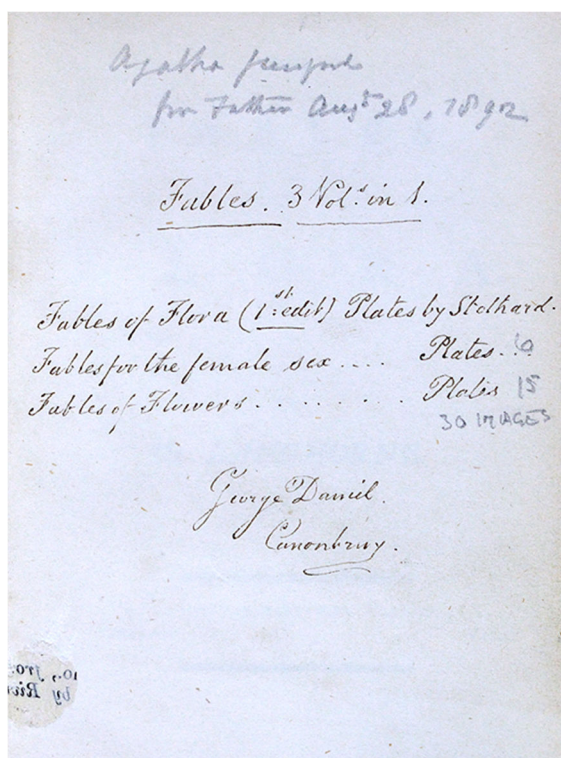 Agatha
for Father Augst 28, 1892
Fables. 3 Vols. in 1.
Fables of Flora (1st: edit) Plates by Stothard.
Fables for the female sex .... Plates .. 6
Fables of Flowers . . . . . . . . Plates 15
30 IMAGES
George Daniel.
Canonbury.